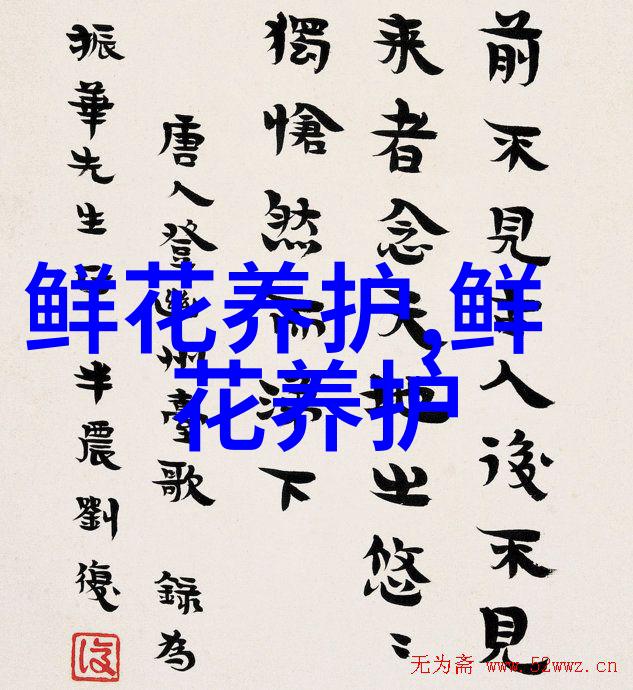 前不見古人後不見
来者念天地之悠〻
獨愴然而涕下
唐人登幽州臺歌 錄為
振華先生 半農劉復
復
鲜花养护,鲜
花养护
无为斋 www.52wwz.cn